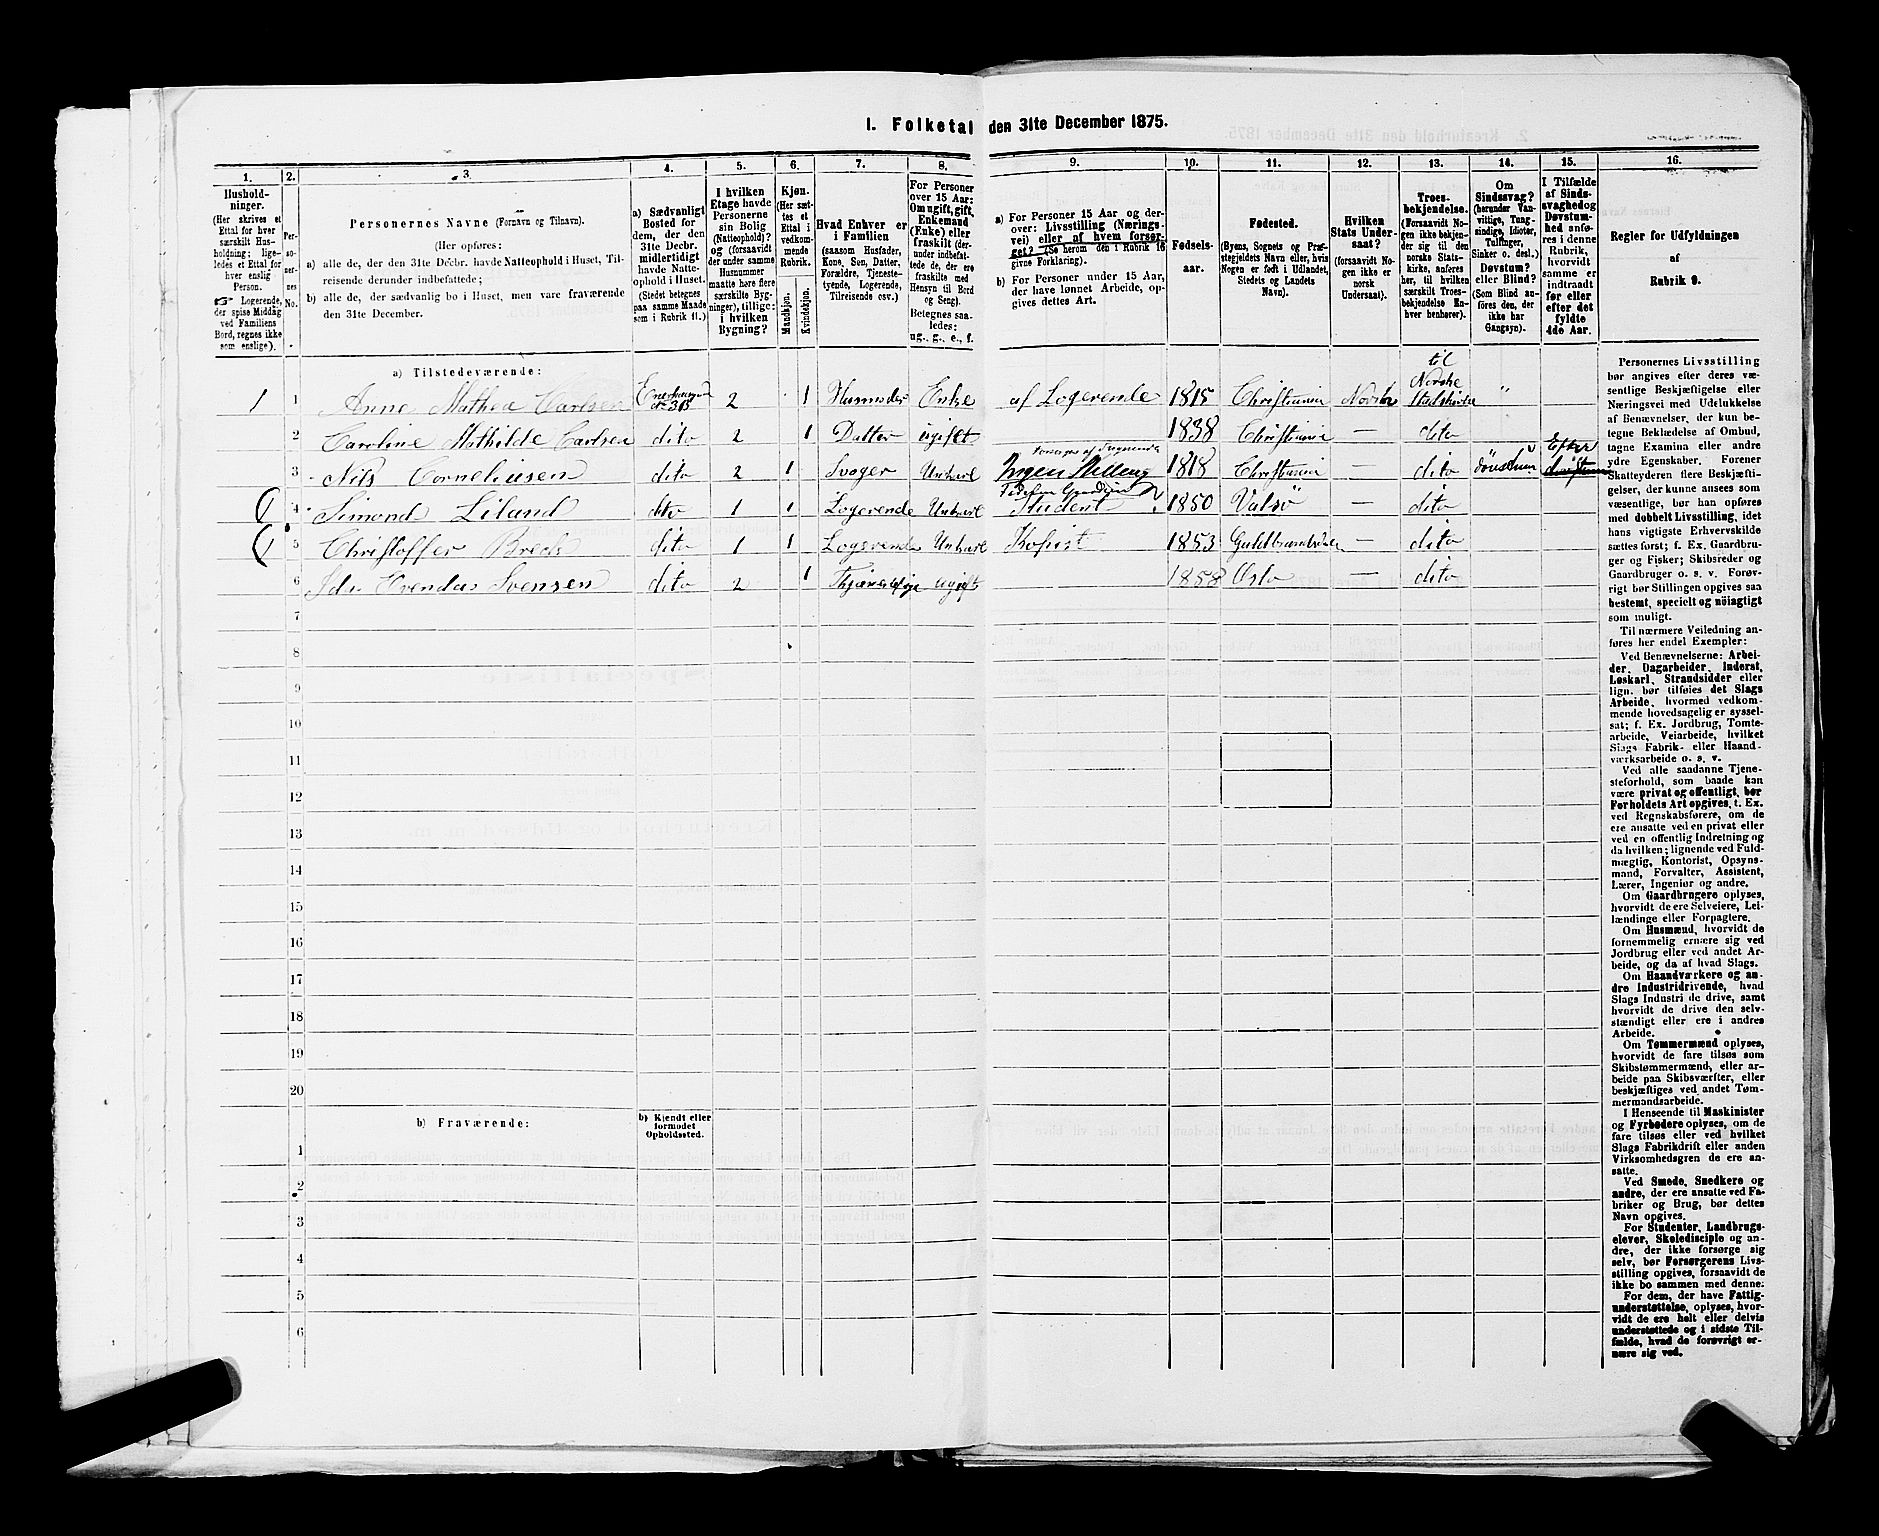 1. Folketal den 31te December 1875.
1.
2.
3.
4.
5.
6.
7.
8.
9.
10.
11.
12.
13.
14.
15.
16.
Hushold-
ninger.
(Her skrives et
Ettal for hver
særskilt Hus-
holdning; lige-
ledes et Ettal for
hver enslig
Person.
Logerende,
der spise Middag
ved Familiens
Bord, regnes ikke
som enslige).
Per-
so-
ner-
nes
No.
Personernes Navne (Fornavn og Tilnavn).
(Her opføres:
a) alle de, der den 31te Decbr. havde Natteophold i Huset, Til-
reisende derunder indbefattede;
b) alle de, der sædvanlig bo i Huset, men vare fraværende
den 31te December.
a) Sædvanligt
Bosted for
dem, der den
31te Decbr.
midlertidigt
havde Natte-
ophold i Huset.
(Stedet betegnes
paa samme Maade
som i Rubrik 11.)
I hvilken
Etage havde
Personerne
sin Bolig
(Natteophold)?
og (forsaavidt
der under samme
Husnummer
maatte høre flere
særskilte Byg-
ninger), tillige:
i hvilken
Bygning?
Kjøn.
(Her sæt-
tes et
Ettal i
vedkom-
mende
Rubrik.
Mandkjøn.
Kvindekjøn.
Hvad Enhver er
i Familien
(saasom Husfader,
Kone, Søn, Datter,
Forældre, Tjeneste-
tyende, Logerende,
Tilreisende osv.)
For Personer
over 15 Aar:
Om ugift, gift,
Enkemand
(Enke) eller
fraskilt (der-
under indbefat-
tede de, der ere
fraskilte med
Hensyn til Bord
og Seng).
Betegnes saa-
ledes:
ug., g., e., f.
a) For Personer 15 Aar og der-
over: Livsstilling (Nærings-
vei) eller af hvem forsør-
get? (Se herom den i Rubrik 16
givne Forklaring).
b) For Personer under 15 Aar,
der have lønnet Arbeide, op-
gives dettes Art.
Fødsels-
aar.
Fødested.
(Byens, Sognets og Præ-
stegjeldets Navn eller, hvis
Nogen er født i Udlandet,
Stedets og Landets
Navn).
Hvilken
Stats Under-
saat?
(forsaavidt No-
gen ikke er
norsk
Undersaat).
Troes-
bekjendelse.
(Forsaavidt No-
gen ikke bekjen-
der sig til den
norske Stats-
kirke, anføres
her, til hvilken
særskilt Troes-
bekjendelse En-
hver henhører).
Om
Sindssvag?
(herunder Van-
vittige, Tung-
sindige, Idioter,
Tullinger,
Sinker o. desl.)
Døvstum?
eller Blind?
(Som Blind an-
føres den, der
ikke har
Gangsyn).
I Tilfælde
af Sinds-
svaghed og
Døvstum-
hed anfø-
res i denne
Rubrik,
hvorvidt
samme er
indtraadt
før eller
efter det
fyldte
4de Aar.
Regler for Udfyldningen
af
Rubrik 9.
a) Tilstedeværende:
1 1 Anne Mathea Carlsen 2 1 Husmoder Enke af Logerende 1815 Christiania Norsk til Norske Statskirke "
2 Caroline Mathilde Carlsen dito 2 1 Datter ugift 1838 Christiania — dito
3 Nils Corneliusen dito 2 1 Svoger Unkarl Ingen Stilling 1818 Christiania — dito Efter
4 Simond Liland dito 1 1 Logerende Unkarl Student 1850 Valsö — dito
5 Christoffer Breds dito 1 1 Logerende Unkarl Kopist 1853 Guldbrandsdalen — dito
6 Svensen dito 2 1 ugift 1858 Oslo — dito
7
8
9
10
11
12
13
14
15
16
17
18
19
20
b) Fraværende:
b) Kjendt eller
formodet
Opholdssted.
1
2
3
4
5
6
Personernes Livsstilling
bør angives efter deres væ-
sentlige Beskjæftigelse eller
Næringsvei med Udelukkelse
af Benævnelser, der kun be-
tegne Beklædelse af Ombud,
tagne Examina eller andre
ydre Egenskaber. Forener
Skatteyderen flere Beskjæfti-
gelser, der kunne ansees som
væsentlige, bør han opføres
med dobbelt Livsstilling, idet
hans vigtigste Erhvervskilde
sættes først; f. Ex. Gaardbru-
ger og Fisker; Skibsreder og
Gaardbruger o. s. v. Forøv-
rigt bør Stillingen opgives saa
bestemt, specielt og nöiagtigt
som muligt.
Til nærmere Veiledning an-
føres her endel Exempler:
Ved Benævnelserne: Arbei-
der, Dagarbeider, Inderst,
Løskarl, Strandsidder eller
lign. bør tilføies det Slags
Arbeide, hvormed vedkom-
mende hovedsagelig er syssel-
sat; f. Ex. Jordbrug, Tomte-
arbeide, Veiarbeide, hvilket
Slags Fabrik- eller Haand-
værksarbeide o. s. v.
Ved alle saadanne Tjene-
steforhold, som baade kan
være privat og offentligt, bør
Forholdets Art opgives, t. Ex.
ved Regnskabsførere, om de
ere ansatte ved en privat eller
ved en offentlig Indretning og
da hvilken; lignende ved Fuld-
mægtig, Kontorist, Opsyns-
mand, Forvalter, Assistent,
Lærer, Ingeniør og andre.
Om Gaardbrugere oplyses,
hvorvidt de ere Selveiere, Lei-
lændinge eller Forpagtere.
Om Husmænd, hvorvidt de
fornemmelig ernære sig ved
Jordbrug eller ved andet Ar-
beide, og da af hvad Slags.
Om Haandværkere og an-
dre Industridrivende, hvad
Slags Industri de drive, samt
hvorvidt de drive den selv-
stændigt eller ere i andres
Arbeide.
Om Tømmermænd oplyses,
hvorvidt de fare tilsøs som
Skibstømmermænd, eller ar-
beide paa Skibsværfter, eller
beskjæftiges ved andet Tøm-
mermandsarbeide.
I Henseende til Maskinister
og Fyrbødere oplyses, om de
fare tilsøs eller ved hvilket
Slags Fabrikdrift eller anden
Virksomhedsgren de ere an-
satte.
Ved Smede, Snedkere og
andre, der ere ansatte ved Fa-
briker og Brug, bør dettes
Navn opgives.
For Studenter, Landbrugs-
elever, Skoledisciple og an-
dre, der ikke forsørge sig
selv, bør Forsørgerens Livs-
stilling opgives, forsaavidt de
ikke bo sammen med denne.
For dem, der have Fattig-
understøttelse, oplyses, hvor-
vidt de ere helt eller delvis
understøttede og i sidste Til-
fælde, hvad de forøvrigt er-
nære sig ved.